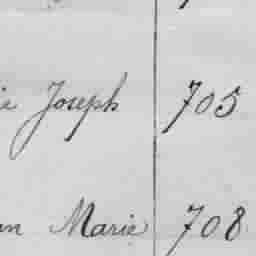 Joseph 705
Marie 708